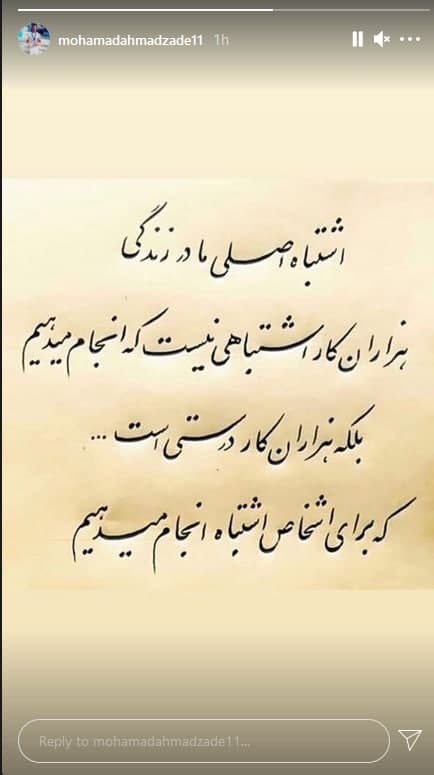 mohamadahmadzade11 1h
اشتباه اصلی ما در زندگی
هزاران کار اشتباهی نیست که انجام میدهیم
بلکه هزاران کار درستی است ...
که برای اشخاص اشتباه انجام میدهیم
Reply to mohamadahmadzade11...